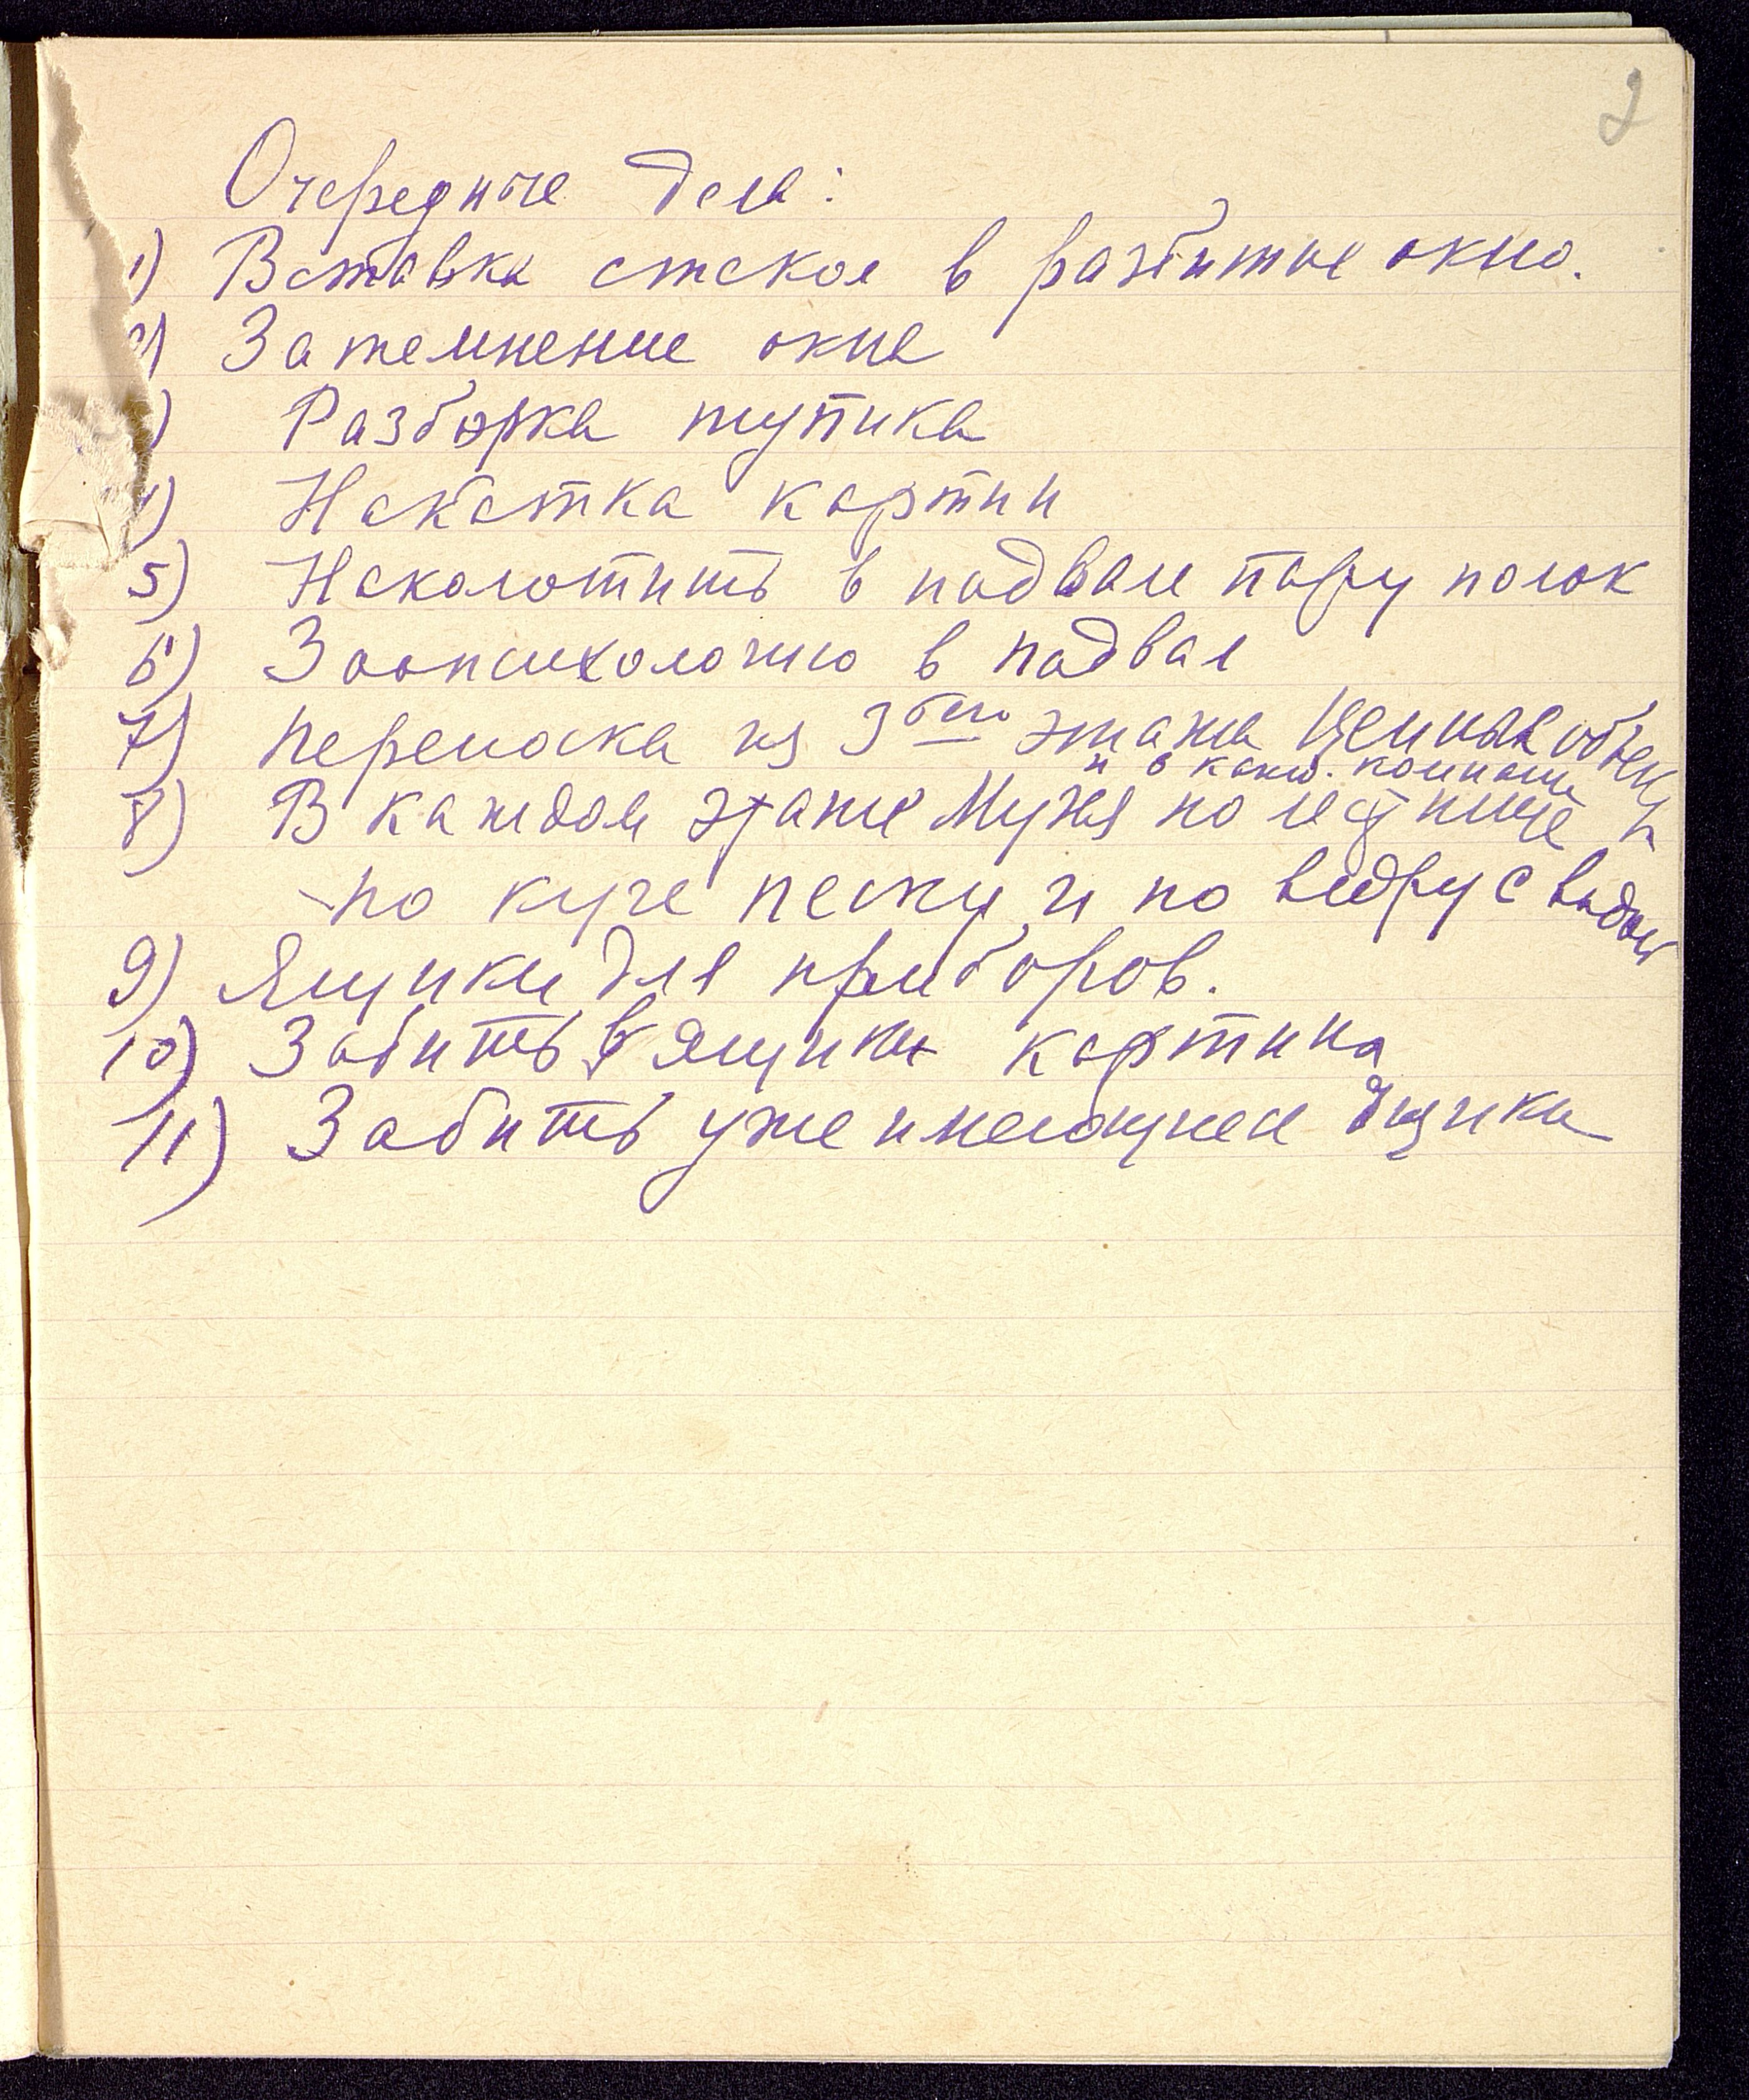 2
Очередные дела:
1) Вставка стекол в разбитые окна.
2) Затемнение окна
) Разборка тупика
4) Накатка картин
5) Наколотить в подвале пару полок
6) Зоопсихологию в подвал
7) переноска из 3его этажа ценных объектов
и в кажд. комнате
8) В каждом этаже Музея по лестнице и
по куче песку и по ведру с водой
9) Ящики для приборов.
10) Забить в ящики картины
11) Забить уже имеющиеся ящики